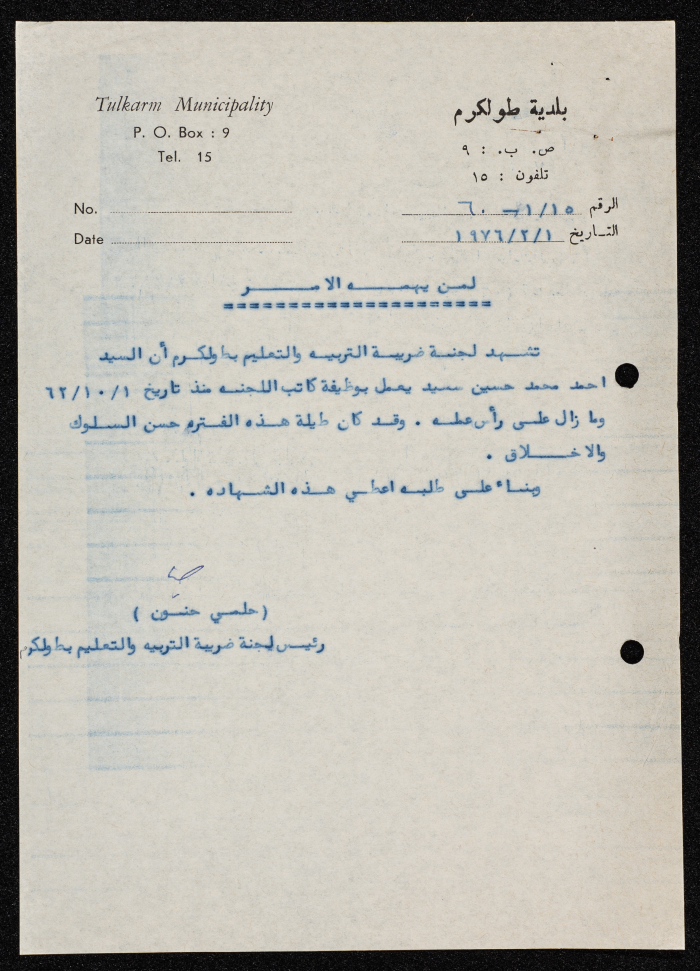 Tulkarm Municipality
P. O. Box : 9
Tel. 15
No.
Date
بلدية طولكرم
ص. ب. : ٩
تلفون : ١٥
الرقم ٦٠ – ١/١٥
التـاريخ ١٩٧٦/٢/١
لمـن يهمـــه الامـــر
تشهـد لجنـة ضريبـة التربيـه والتعليم بطولكـرم أن السيد
احمد محمد حسين سعيد يعمل بوظيفة كاتب اللجنـه منذ تاريخ ٦٢/١٠/١
وما زال علـى رأس عملـه . وقـد كان طيلة هـذه الفتـره حسن السـلوك
والاخـــلاق .
وبنـاء علـى طلبـه اعطـي هـذه الشـهاده .
( حلمـي حنـون )
رئيـس لجنة ضريبة التربيه والتعليم بطولكرم